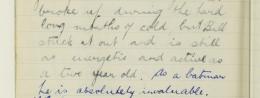 broke up during the hard
long months of cold but Bill
stuck it out and is still
as energetic and active as
a two year old. As a batman
he is absolutely invaluable.